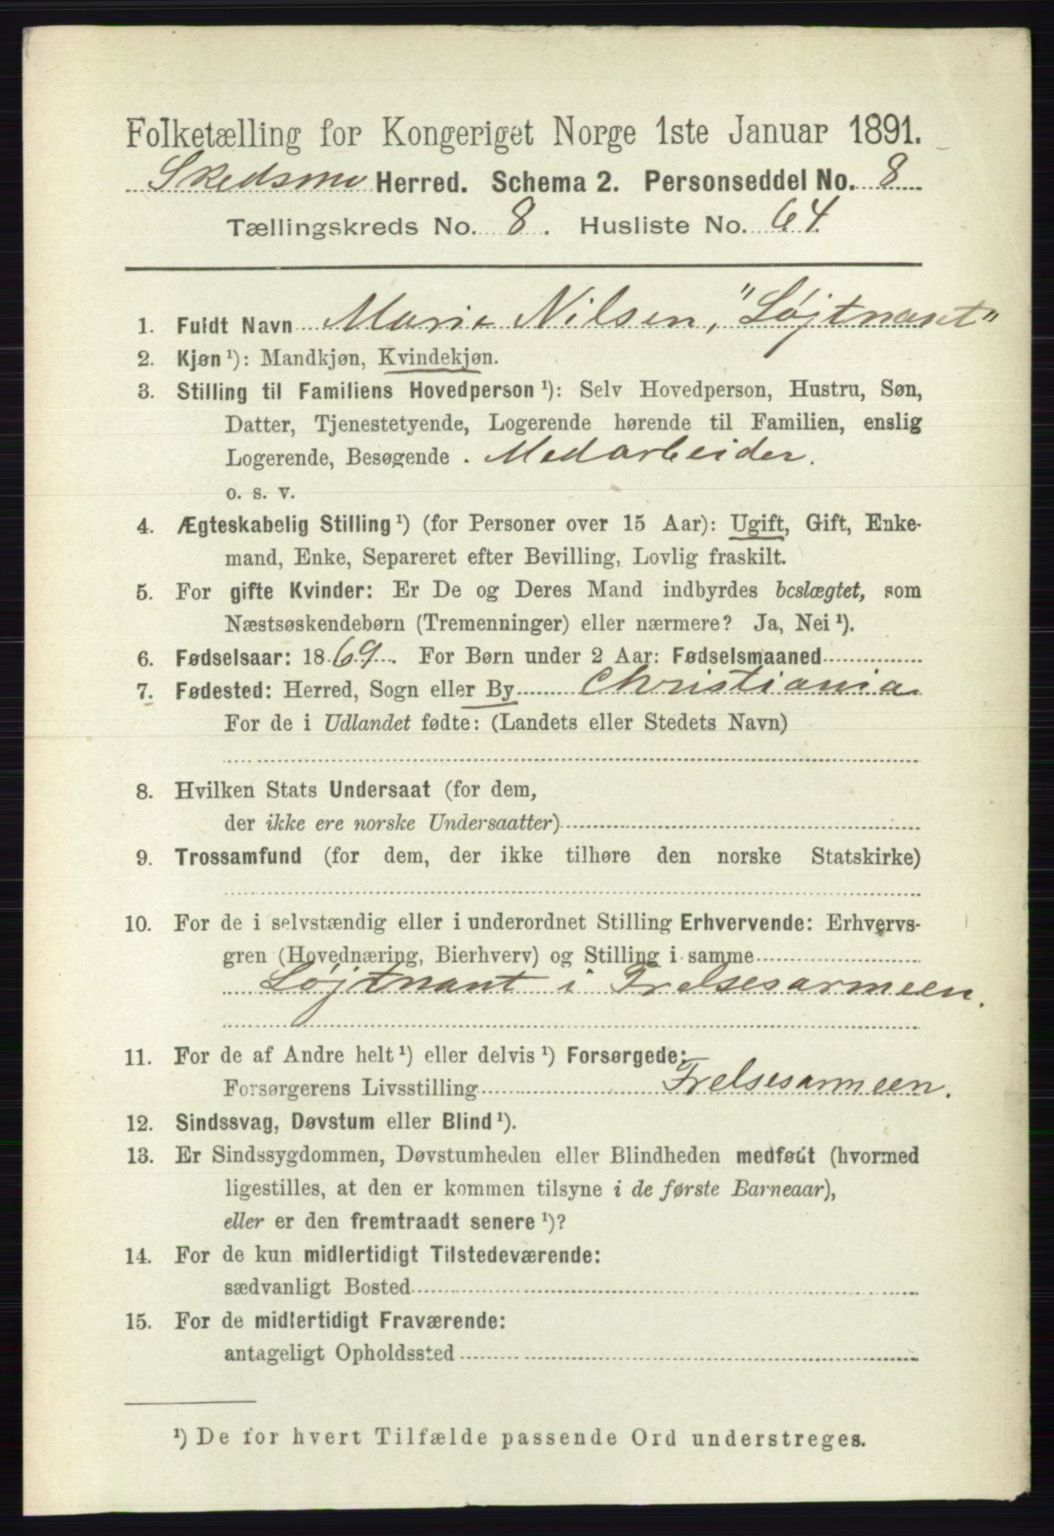 Folketælling for Kongeriget Norge 1ste Januar 1891.
Skedsmo Herred. Schema 2. Personseddel No. 8
Tællingskreds No. 8. Husliste No. 64.
1. Fuldt Navn Marie Nilsen, "Løjtnant"
2. Kjøn ¹): Mandkjøn, Kvindekjøn.
3. Stilling til Familiens Hovedperson ¹): Selv Hovedperson, Hustru, Søn,
Datter, Tjenestetyende, Logerende hørende til Familien, enslig
Logerende, Besøgende . Medarbeider.
o. s. v.
4. Ægteskabelig Stilling ¹) (for Personer over 15 Aar): Ugift, Gift, Enke-
mand, Enke, Separeret efter Bevilling, Lovlig fraskilt.
5. For gifte Kvinder: Er De og Deres Mand indbyrdes beslægtet, som
Næstsøskendebørn (Tremenninger) eller nærmere? Ja, Nei ¹).
6. Fødselsaar: 1869. For Børn under 2 Aar: Fødselsmaaned
7. Fødested: Herred, Sogn eller By Christiania
For de i Udlandet fødte: (Landets eller Stedets Navn)
8. Hvilken Stats Undersaat (for dem,
der ikke ere norske Undersaatter)
9. Trossamfund (for dem, der ikke tilhøre den norske Statskirke)
10. For de i selvstændig eller i underordnet Stilling Erhvervende: Erhvervs-
gren (Hovednæring, Bierhverv) og Stilling i samme
Løjtnant i Frelsesarmeen.
11. For de af Andre helt ¹) eller delvis ¹) Forsørgede:
Forsørgerens Livsstilling Frelsesarmeen.
12. Sindssvag, Døvstum eller Blind ¹).
13. Er Sindssygdommen, Døvstumheden eller Blindheden medfødt (hvormed
ligestilles, at den er kommen tilsyne i de første Barneaar),
eller er den fremtraadt senere ¹)?
14. For de kun midlertidigt Tilstedeværende:
sædvanligt Bosted
15. For de midlertidigt Fraværende:
antageligt Opholdssted
¹) De for hvert Tilfælde passende Ord understreges.